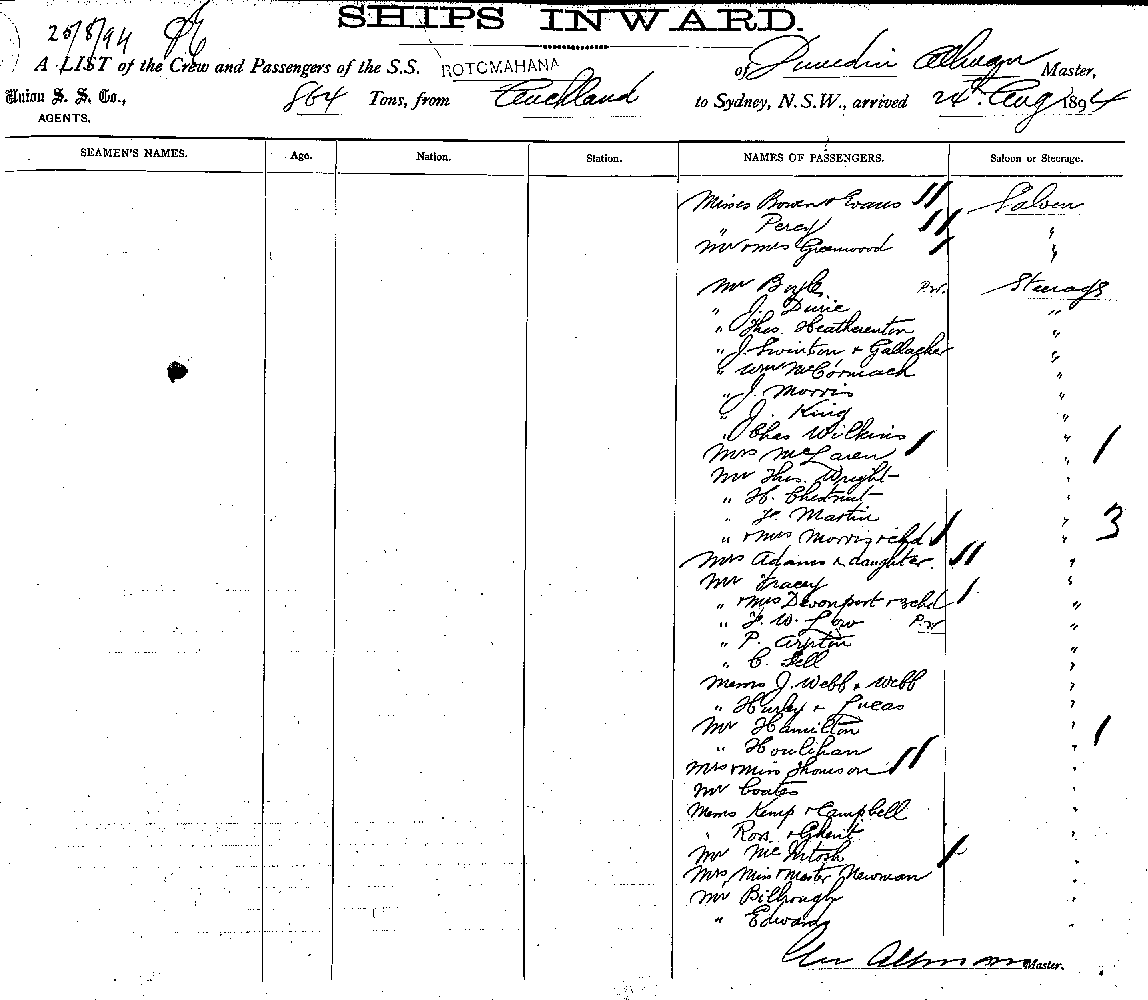 SHIPS INWARD.
25/8/94
A LIST of the Crew and Passengers of the S.S. ROTOMAHANA of Dunedin Master,
Union S. S. Co., 864 Tons, from Auckland to Sydney, N.S.W., arrived 24th Aug 1894
AGENTS.
SEAMEN'S NAMES. Age. Nation. Station. NAMES OF PASSENGERS. Saloon or Steerage.
Misses Bowen & Evans Saloon
" Percy "
Mr & Mrs Greenwood "
Mr Boyle P.W. Steerage
" J. Durie "
" Thos. Heatherenton "
" J. Swinton & Gallagher "
" Wm McCormack "
" J. Morris "
" J. King "
" Chas Wilkins "
Mrs McLaren " 1
Mr Thos. Wright "
" H. Chestnut "
" F. Martin "
" & Mrs Morris & chd " 3
Mrs Adams & daughter "
Mr Tracey "
" & Mrs Devonport & 3 chd "
" F. W. Low P.W "
" P. "
" C. Sell "
Messrs J. Webb & Webb "
" Hurley & Lucas "
Mr Hamilton " 1
" Houlihan "
Mrs & Miss Thomson "
Mr Coates "
Messrs Kemp & Campbell "
" Ross & "
Mr McIntosh "
Mrs, Miss & Master Newman "
Mr Billrough "
" Edwards "
Master.